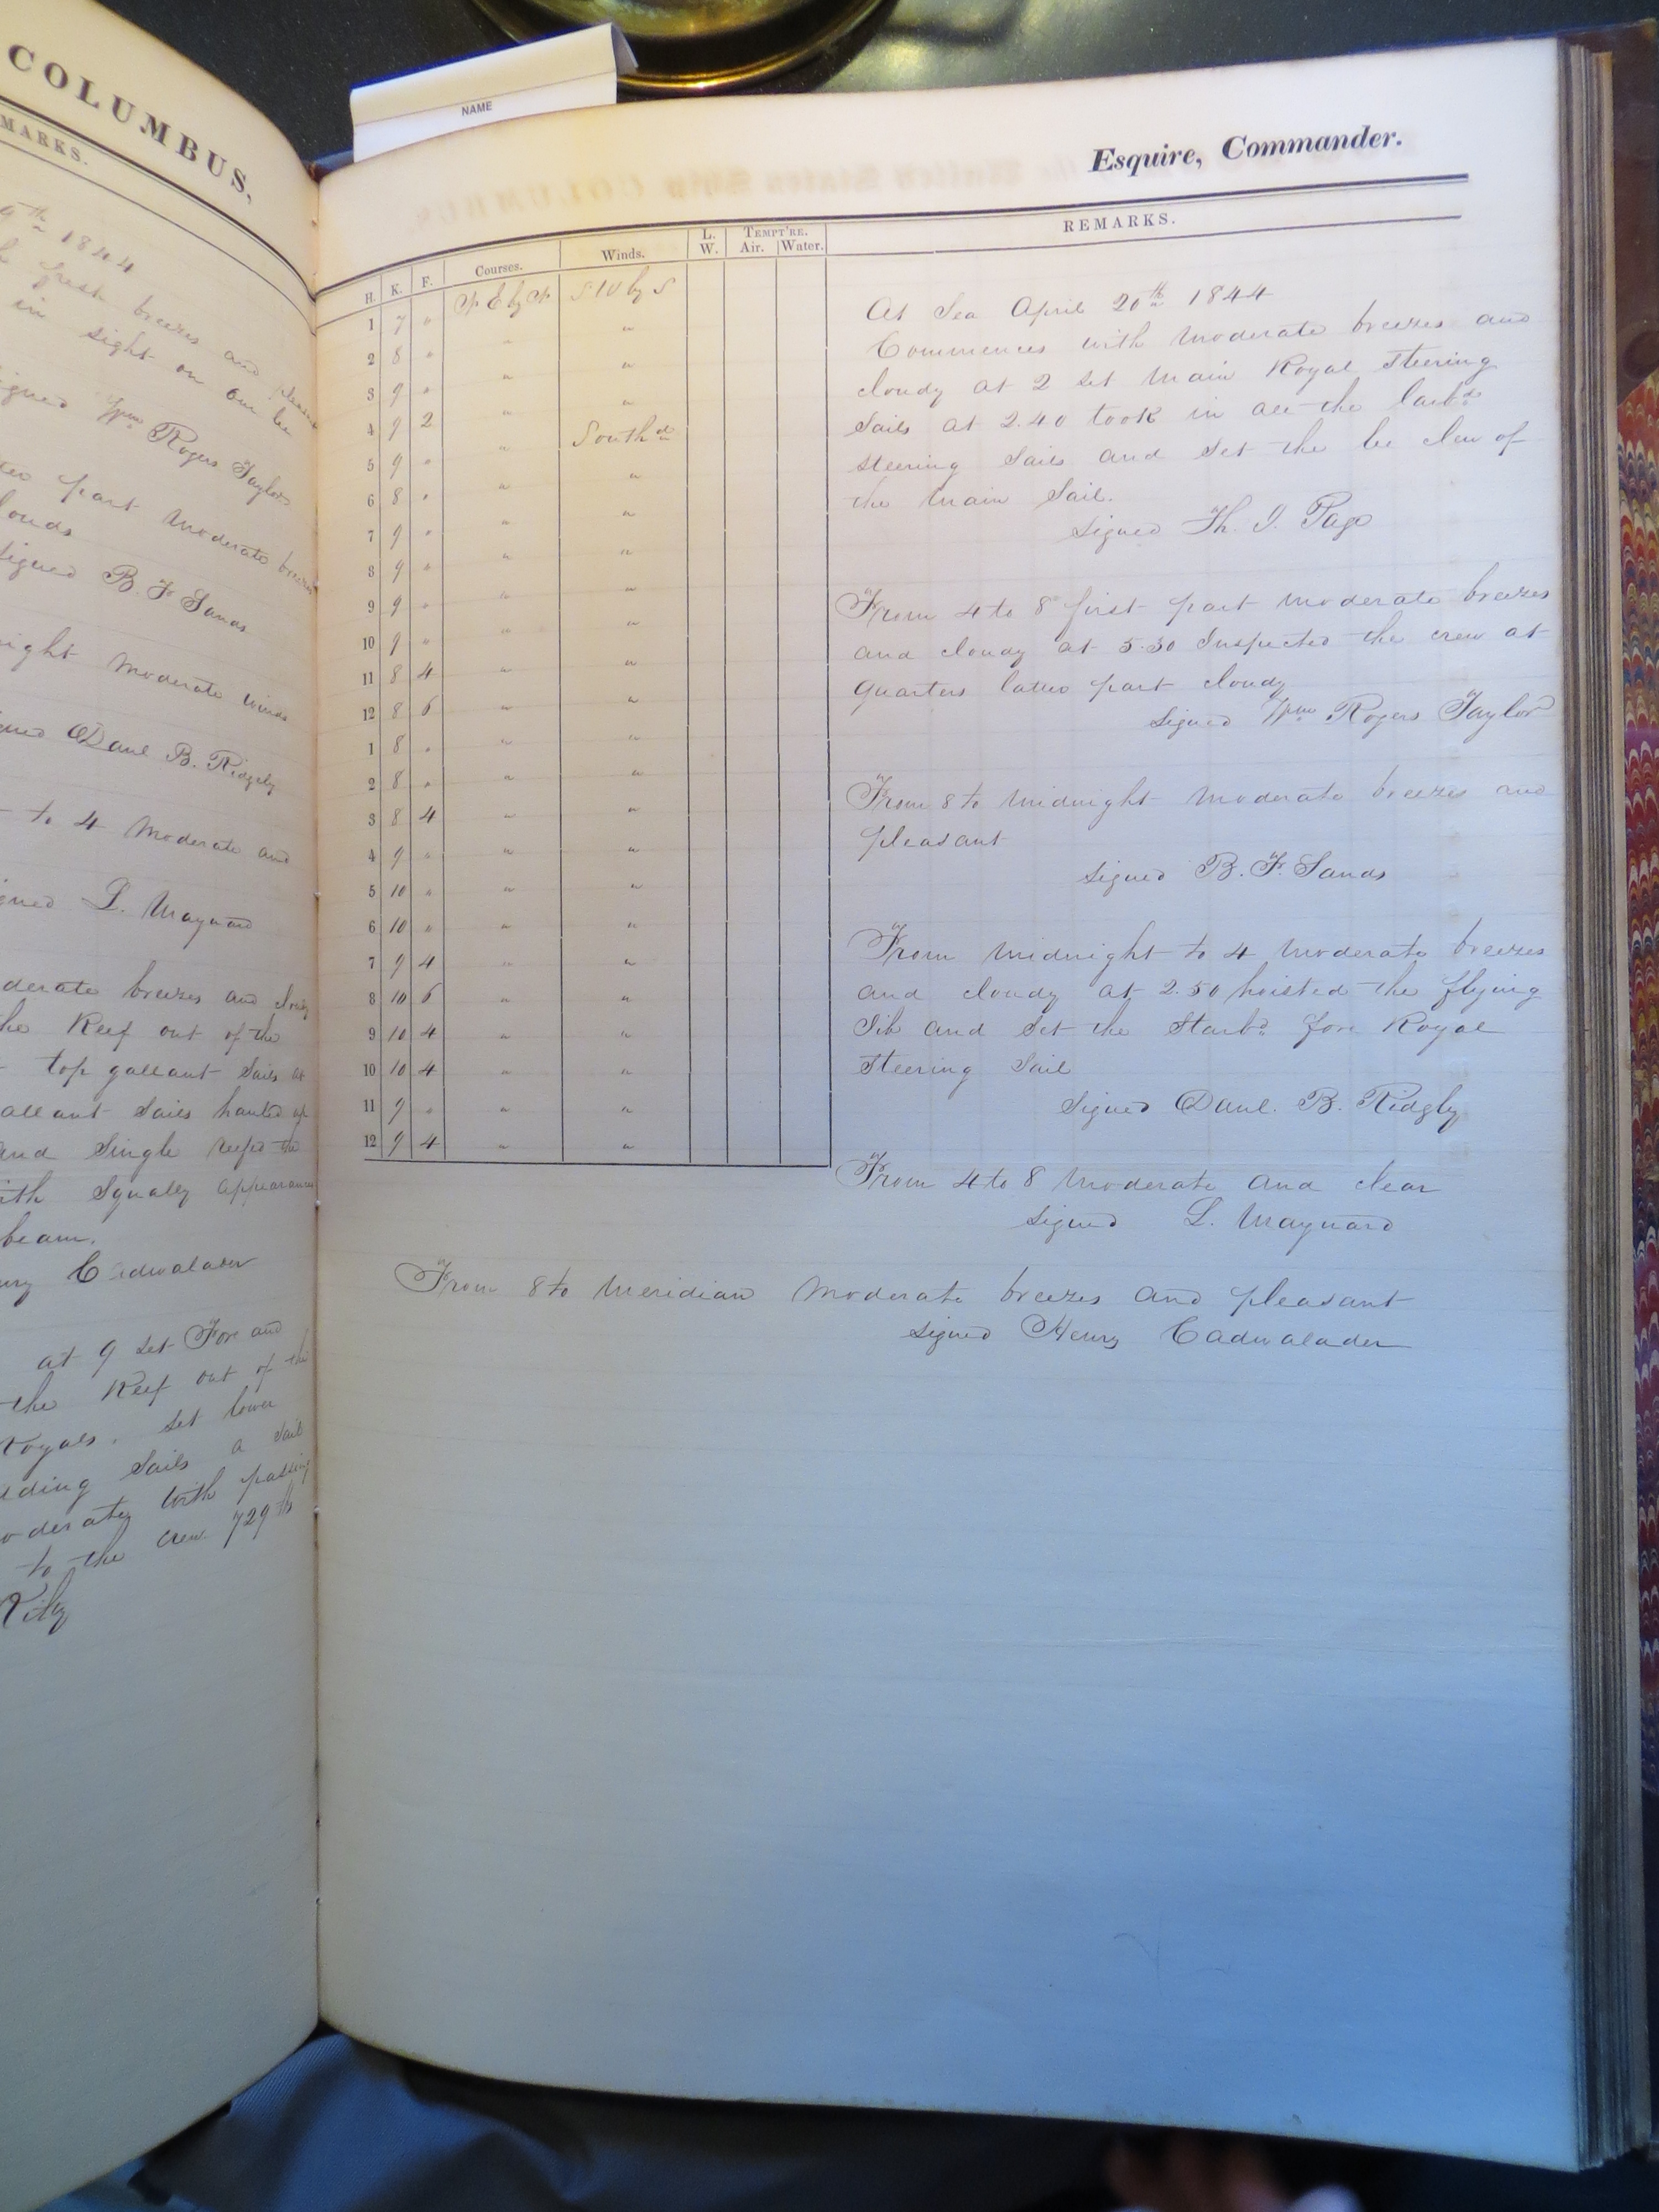 COLUMBUS.
MARKS.
9th 1844
fresh breezes and pleasant
in sight on our lee
Signed Wm Rogers Taylor
part moderate breezes
Signed B. F. Sands
moderate winds
Danl B. Ridgely
to 4 moderate and
L. Maynard
derate breezes and cloudy
he Reef out of the
top gallant sails at
allant sails hauled up
and single reefd the
ith squally appearance
beam.
Cadwalader
at 9 set Fore and
the Reef out of the
Royals. set lower
dding sails a sail
oderately with passing
to the crew 729 lb
NAME
Esquire, Commander.
H. K. F. Courses. Winds. L. W. TEMPT'RE. Air. Water. REMARKS.
N E by N S W by S
1 7 "
2 8 " " "
3 9 " " "
4 9 2 " "
5 9 " " Southd
6 8 " " "
7 9 " " "
8 9 " " "
9 9 " " "
10 9 " " "
11 8 4 " "
12 8 6 " "
1 8 " " "
2 8 " " "
3 8 4 " "
4 9 " " "
5 10 " " "
6 10 " " "
7 9 4 " "
8 10 6 " "
9 10 4 " "
10 10 4 " "
11 9 " " "
12 9 4 " "
At Sea April 20th 1844
Commences with moderate breezes and
cloudy at 2 set main Royal steering
sails at 2.40 took in all the larbd
steering sails and set the lee clew of
the main sail.
Signed Th. J. Page
From 4 to 8 first part moderate breezes
and cloudy at 5.30 Inspected the crew at
quarters latter part cloudy
Signed Wm Rogers Taylor
From 8 to midnight moderate breezes and
pleasant
Signed B. F. Sands
From midnight to 4 moderate breezes
and cloudy at 2.50 hoisted the flying
Jib and set the Starbd fore Royal
steering sail
Signed Danl. B. Ridgely
From 4 to 8 moderate and clear
Signed L. Maynard
From 8 to meridian moderate breezes and pleasant
Signed Henry Cadwalader